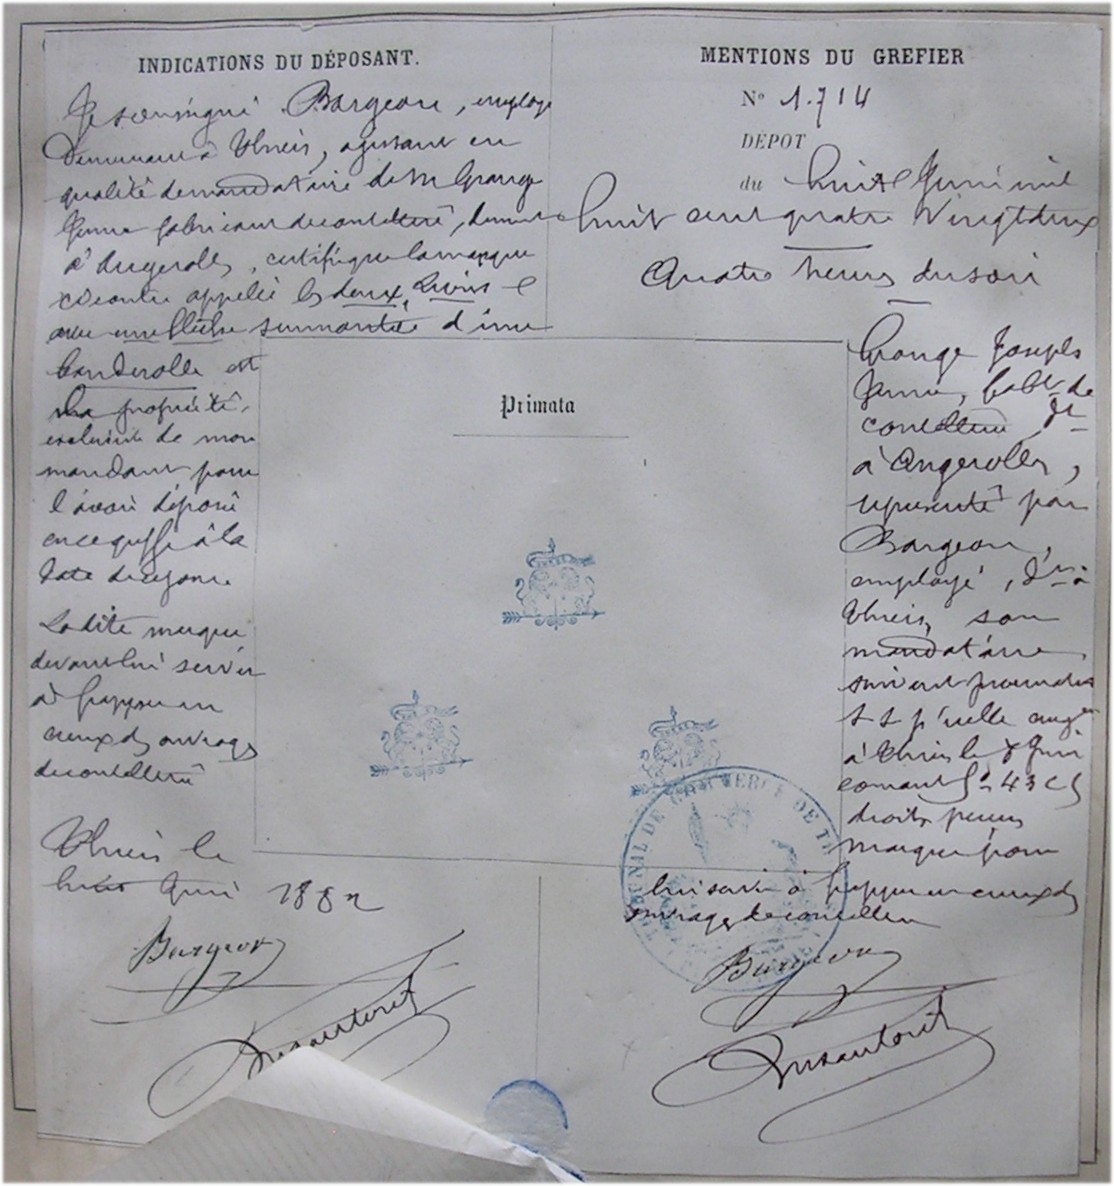 INDICATIONS DU DÉPOSANT.
Je soussigné Bargeon, employé
demeurant à Thiers, agissant en
qualité de mandataire de M Grange
Jeune fabricant de coutellerie, demt
à Augerolles, certifie que la marque
ci contre appelée les deux
avec une flèche surmontée d'une
banderolle est
la propriété
exclusive de mon
mandant pour
l'avoir déposé
en ce greffe à la
date de ce jour.
Ladite marque
devant lui servir
à frapper en
creux des ouvrages
de coutellerie
Thiers le
huit Juin 1882
Bargeon
MENTIONS DU GREFIER
No 1.714
DÉPOT
du huit Juin mil
huit cent quatre vingt deux
quatre heures du soir
Primata
Grange Joseph
Jeune, fabt de
coutellerie, dt
à Augerolles,
représenté par
Bargeon,
employé, dt à
Thiers, son
mandataire
suivant procuration
s s p
à Thiers le 8 Juin
courant 43 cs
droits perçus
marque pour
lui servir à frapper en creux des
ouvrages de coutellerie
TRIBUNAL DE COMMERCE DE TH
Bargeon